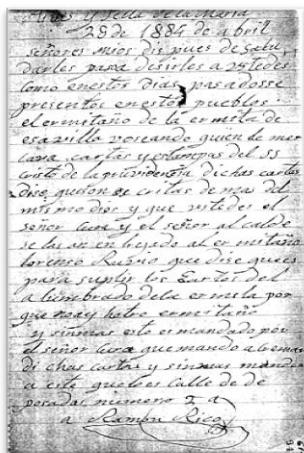 y Sella de la Maria
28 de 1884 de abril
señores mios dispues de Salu
darles pasa desirles a ustedes
como enestos dias pasadosse
presentó enestos pueblos
el ermitaño de la ermita de
voseando quien le mer
cava cartas yestampas del SS
Cristo de la providencia dichas cartas
dise queson es critas de mas del
mismo dios y que ustedes el
señor Cura y el señor al calde
selas an en al er mitaño
lorenco que dise quees
para suplir los Gastos del
a lumbrado dela ermita por
que noay hotro ermitaño
y sinmas esto es mandado por
el señor Cura que mando a
di chas cartas y sinmas
a este Calle de
posadas número 2 a
a Ramon Rico